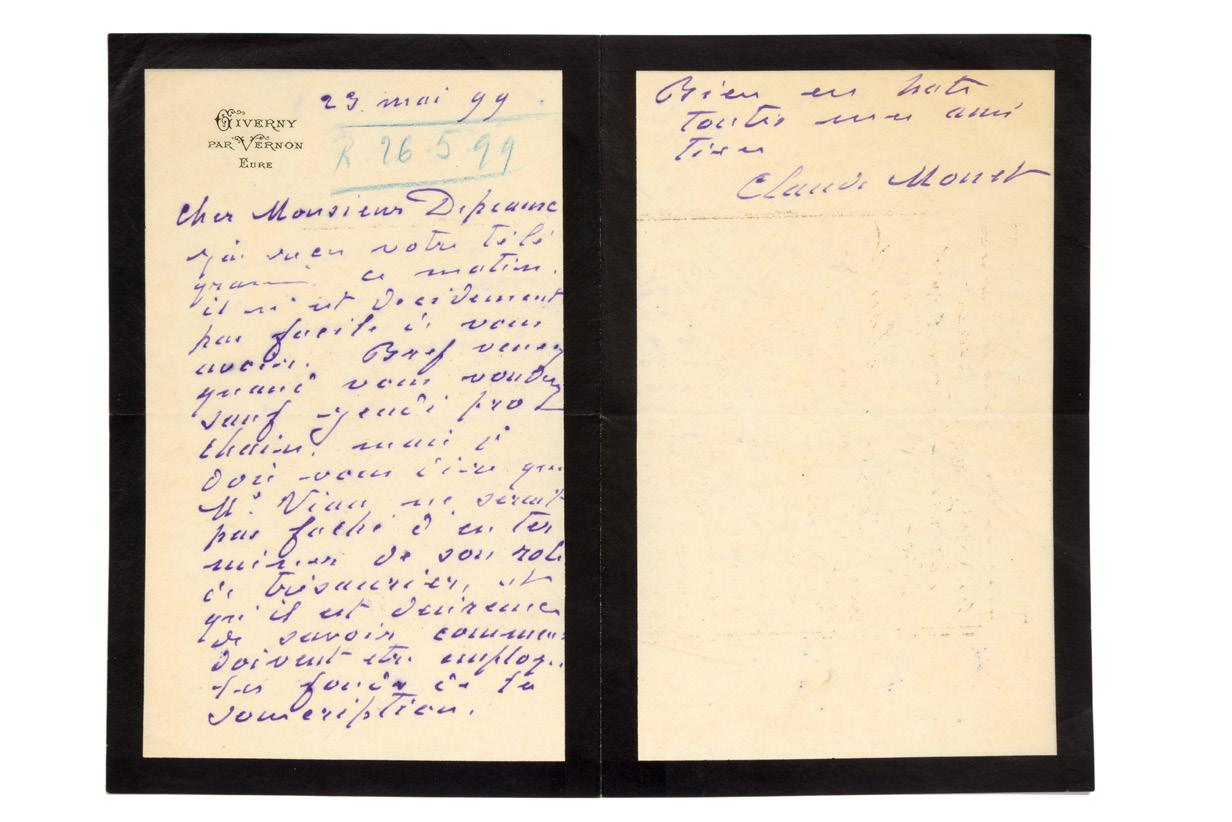 GIVERNY
PAR VERNON
EURE
23. mai 99.
R. 26.5.99
Cher Monsieur Depeaux
j'ai reçu votre télé
gramme ce matin.
il n'est decidement
pas facile à vous
avoir. Bref venez
quand vous voudrez
sauf jeudi pro
chain, mais je
dois vous dire que
Mr. Viau ne serait
pas faché d'en ter
miner de son role
de trésaurier, et
qu'il est
de savoir comment
doivent etre employés
les fonds de la
souscription.
Bien en hate
toutes mes ami
tiés
Claude Monet